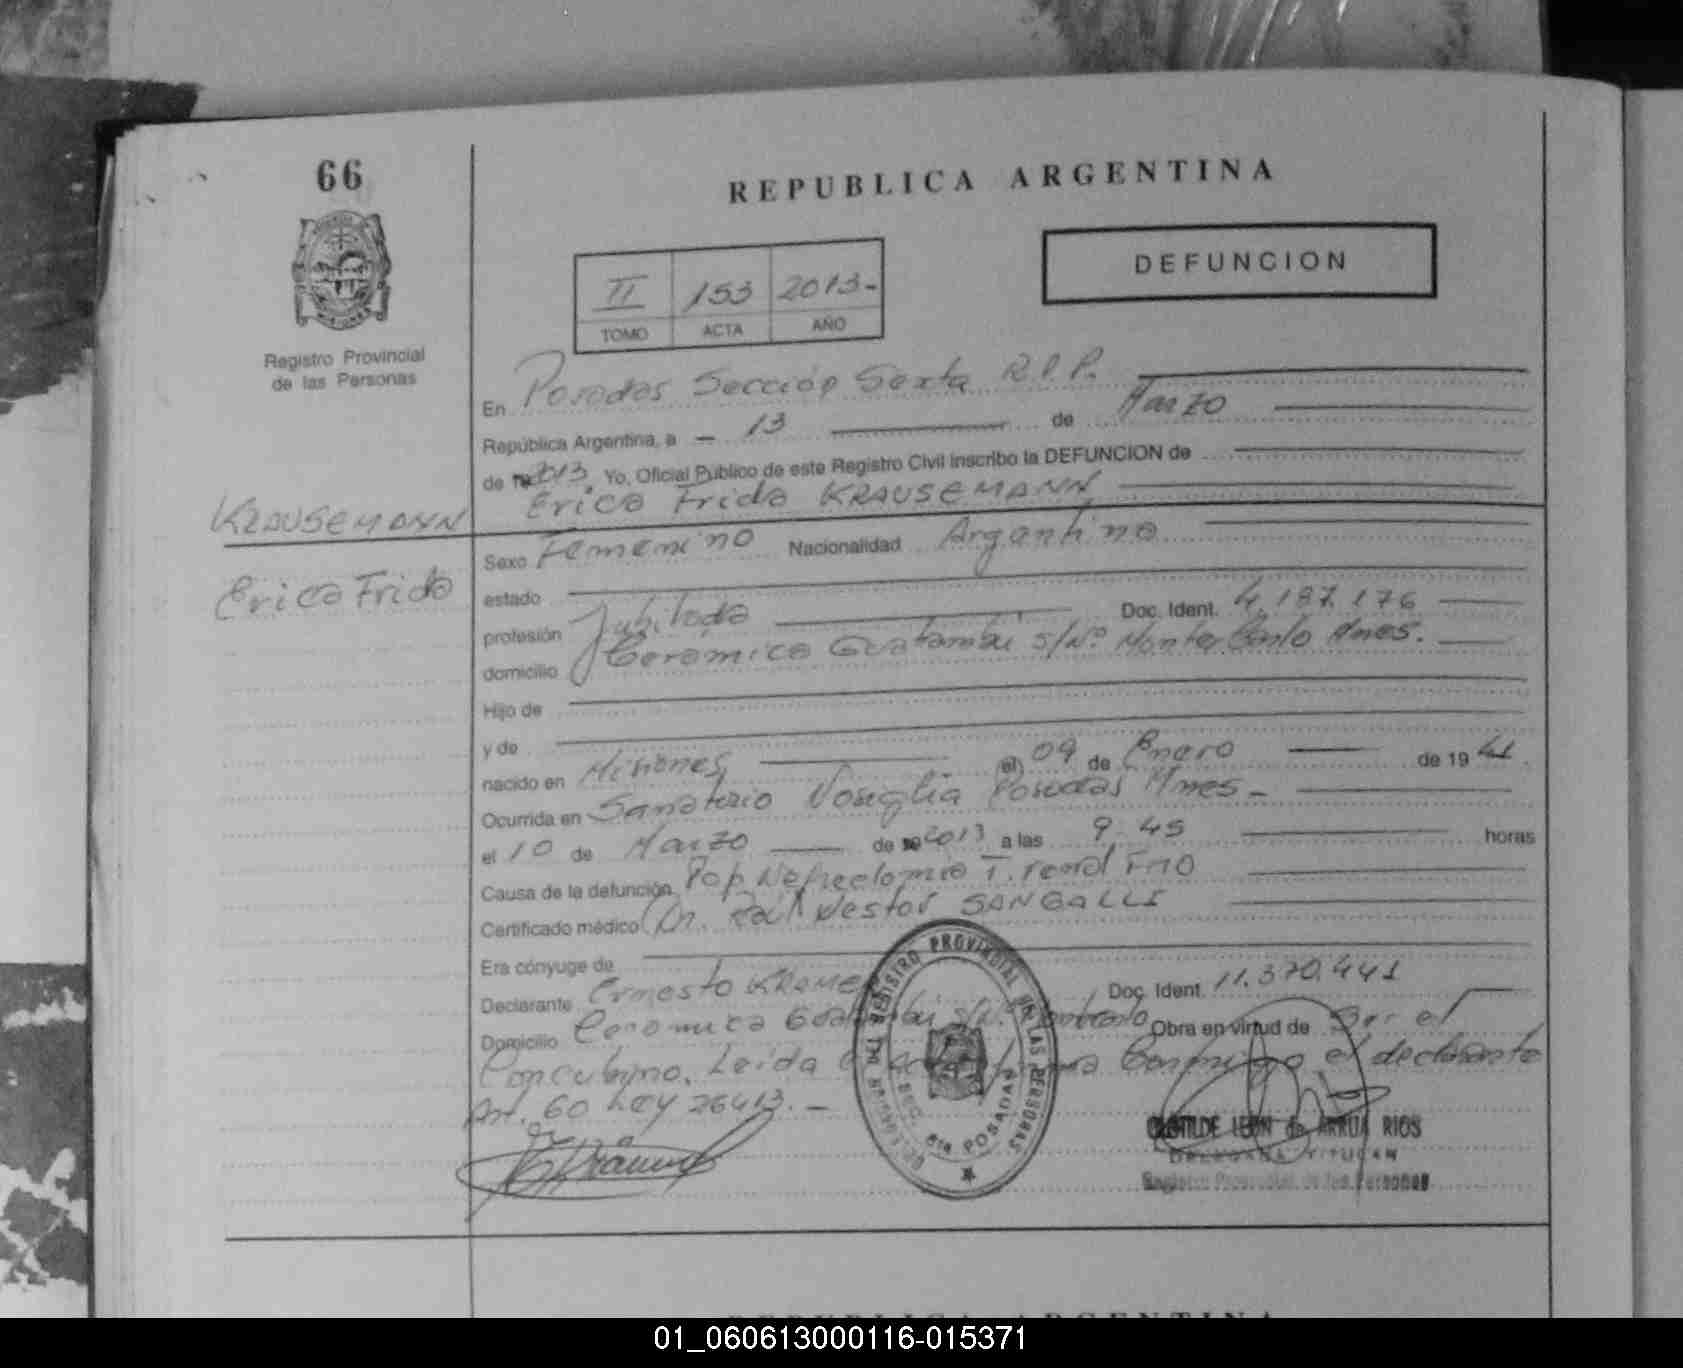 66
REPUBLICA ARGENTINA
DEFUNCION
II 153 2013-
TOMO ACTA AÑO
Registro Provincial
de las Personas
En Posadas Sección Sexta R.P.P.
República Argentina, a - 13 de Marzo
de 2013. Yo, Oficial Público de este Registro Civil inscribo la DEFUNCION de
Erica Frida KRAUSEMANN
KRAUSEMANN
Erica Frida
Sexo Femenino Nacionalidad Argentina
estado
profesión Jubilada Doc. Ident. 4.187.176
domicilio Ceramica Guatambú s/Nº Monte Carlo Mnes.
Hijo de
y de
nacido en Misiones el 09 de Enero de 1941.
Ocurrida en Sanatorio Nosiglia Posadas Mnes-
el 10 de Marzo de 2013 a las 9.45 horas
Causa de la defunción Pop Nefrectomia T. renal FMO
Certificado médico Dr. Raúl Nestor SANGALLI
Era cónyuge de
Declarante Ernesto KRAMER Doc. Ident. 11.370.441
Domicilio Ceramica Guatambú s/Nº Obra en virtud de Ser el
Concubino. Leida firma Conmigo el declarante
Art. 60 Ley 26413.-
REGISTRO PROVINCIAL DE LAS PERSONAS
SEC. 6ta POSADAS
CLOTILDE LEON de ARRUA RIOS
Registro Provincial de las Personas
REPUBLICA ARGENTINA
01_060613000116-015371